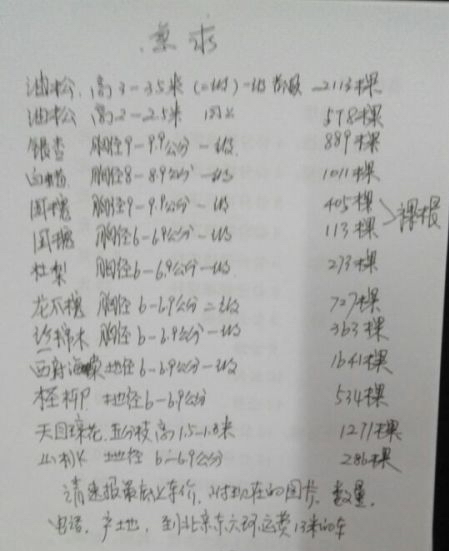 急求
油松 高3-3.5米 (二级)一级 2113棵
油松 高2-2.5米 同上 578棵
银杏 胸径9-9.9公分 一级 889棵
白蜡 胸径8-8.9公分 一级 1011棵
国槐 胸径9-9.9公分 一级 405棵
国槐 胸径6-6.9公分 一级 113棵 裸根
杜梨 胸径6-6.9公分 一级 273棵
龙爪槐 胸径6-6.9公分 二级 727棵
胸径6-6.9公分 一级 363棵
西府海棠 地径6-6.9公分 一级 1641棵
柽柳 地径6-6.9公分 534棵
天目琼花 五分枝 高1.5-1.8米 1271棵
地径6-6.9公分 286棵
请速报最低上车价,附现在的图片,数量,
电话,产地,到北京东六环运费13米的车